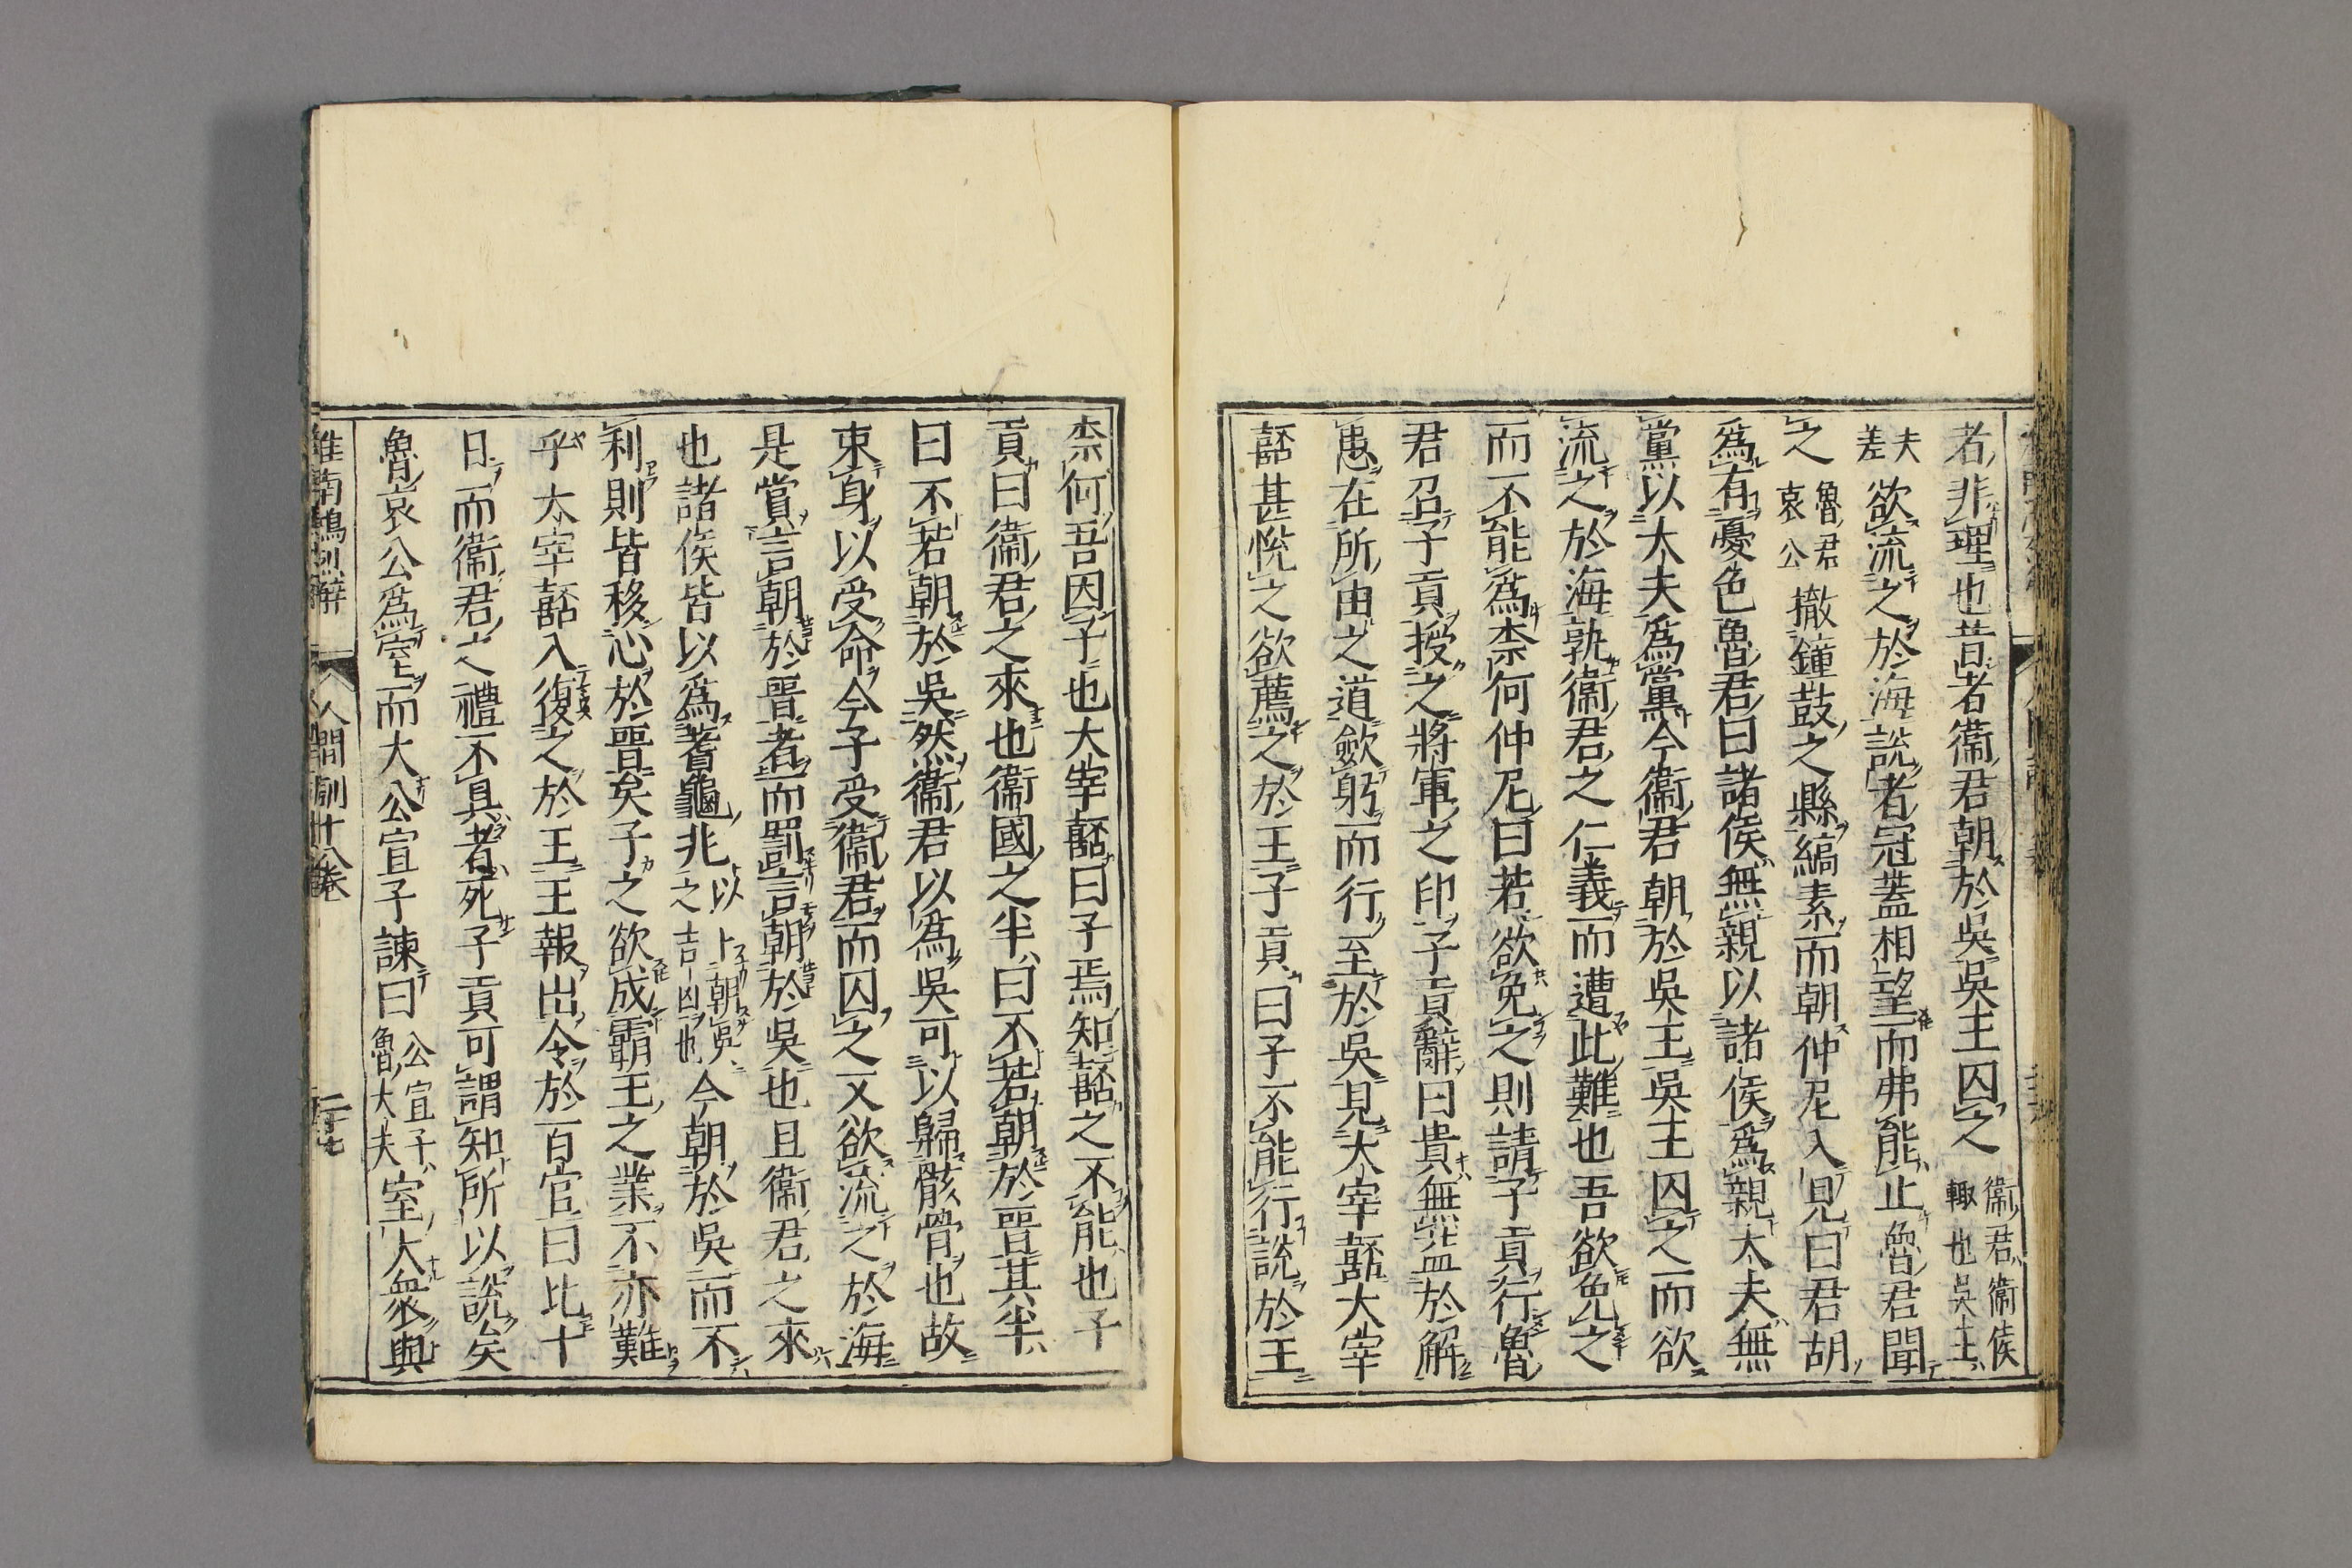 者非理也昔者衞君朝於吳吳王囚之衞君衞侯輙也吳王
夫差欲流之於海說者冠蓋相望而弗能止魯君聞
之魯君哀公撤鐘鼓之縣縞素而朝仲尼入見曰君胡
爲有憂色魯君曰諸侯無親以諸侯爲親大夫無
黨以大夫爲黨今衞君朝於吳王吳王囚之而欲
流之於海孰衞君之仁義而遭此難也吾欲免之
而不能爲柰何仲尼曰若欲免之則請子貢行魯
君召子貢授之將軍之印子貢辭曰貴無益於解
患在所由之道斂躬而行至於吳見大宰嚭大宰
嚭甚悅之欲薦之於王子貢曰子不能行說於王
柰何吾因子也大宰嚭曰子焉知嚭之不能也子
貢曰衞君之來也衞國之半曰不若朝於晋其半
曰不若朝於吳然衞君以爲吳可以歸骸骨也故
束身以受命今子受衞君而囚之又欲流之於海
是賞言朝於晋者而罰言朝於吳也且衞君之來
也諸侯皆以爲蓍龜兆以卜朝吳之吉凶也今朝於吳而不
利則皆移心於晋矣子之欲成霸王之業不亦難
乎太宰嚭入復之於王王報出令於百官曰比十
日而衞君之禮不具者死子貢可謂知所以說矣
魯哀公爲室而大公宣子諫曰公宣子魯大夫室大衆與
淮南鴻烈解 人間訓十八卷 二十七